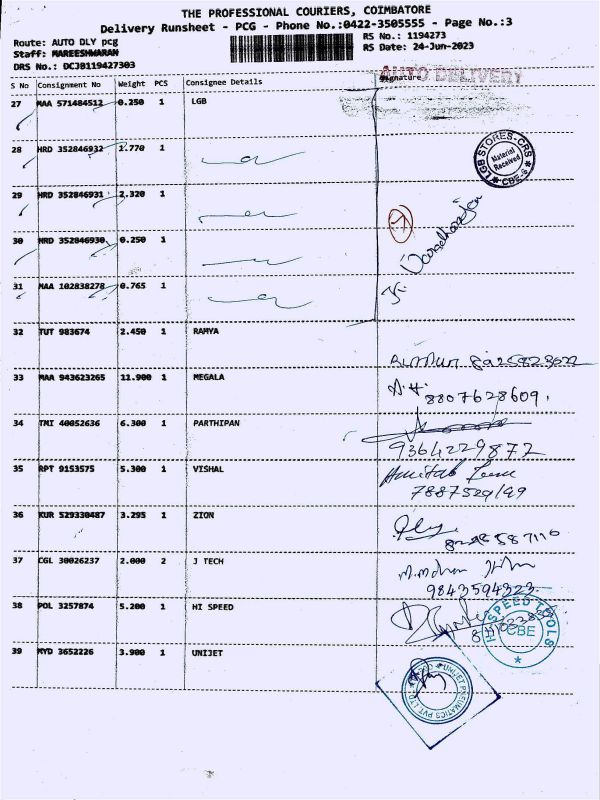 THE PROFESSIONAL COURIERS, COIMBATORE
Delivery Runsheet - PCG - Phone No.:0422-3505555 - Page No.:3
Route: AUTO DLY pcg
RS No.: 1194273
Staff: MAREESHWARAN
RS Date: 24-Jun-2023
DRS No.: DCJB119427303
AUTO DELIVERY
S No Consignment No Weight PCS Consignee Details Signature
27 MAA 571484512 0.250 1 LGB
28 HRD 352846932 1.770 1
LGB STORES-CRS Material Received CBE-6
29 HRD 352846931 2.320 1
30 HRD 352846930 0.250 1
31 MAA 102838278 0.765 1
32 TUT 983674 2.450 1 RAMYA
33 MAA 943623265 11.900 1 MEGALA
8807628609.
34 TMI 40052636 6.300 1 PARTHIPAN
9364229877
35 RPT 9153575 5.300 1 VISHAL
36 KUR 529330487 3.295 1 ZION
37 CGL 30026237 2.000 2 J TECH
9843594323
38 POL 3257874 5.200 1 HI SPEED
HI SPEED TOOLS CBE
39 MYD 3652226 3.900 1 UNIJET
UNIJET PNEUMATICS PVT. LTD